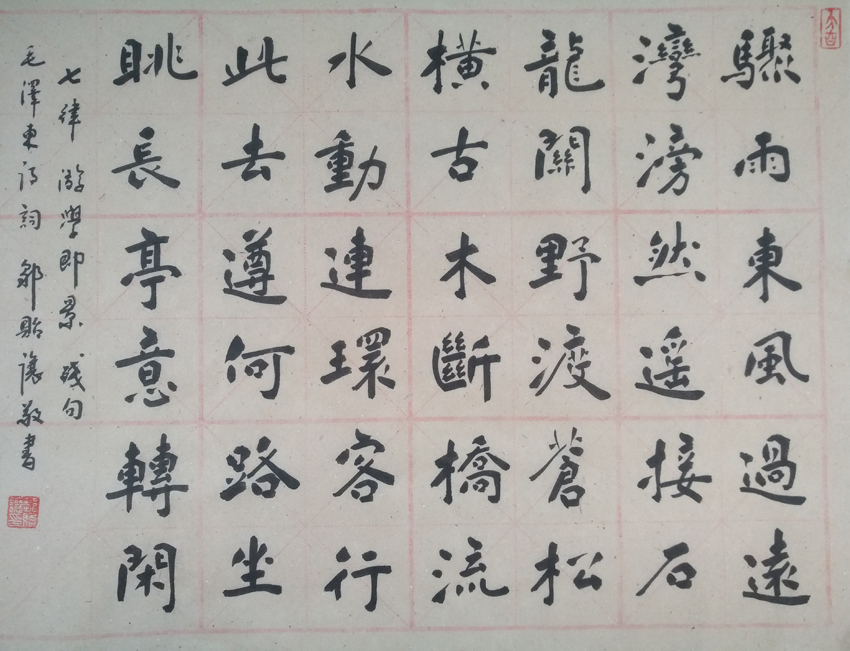 驟雨東風過遠
灣滂然遥接石
龍關野渡蒼松
橫古木斷橋流
水動連環客行
此去遵何路坐
眺長亭意轉閑
七律 游學即景 殘句
毛澤東詩詞 鄒貽讓敬書